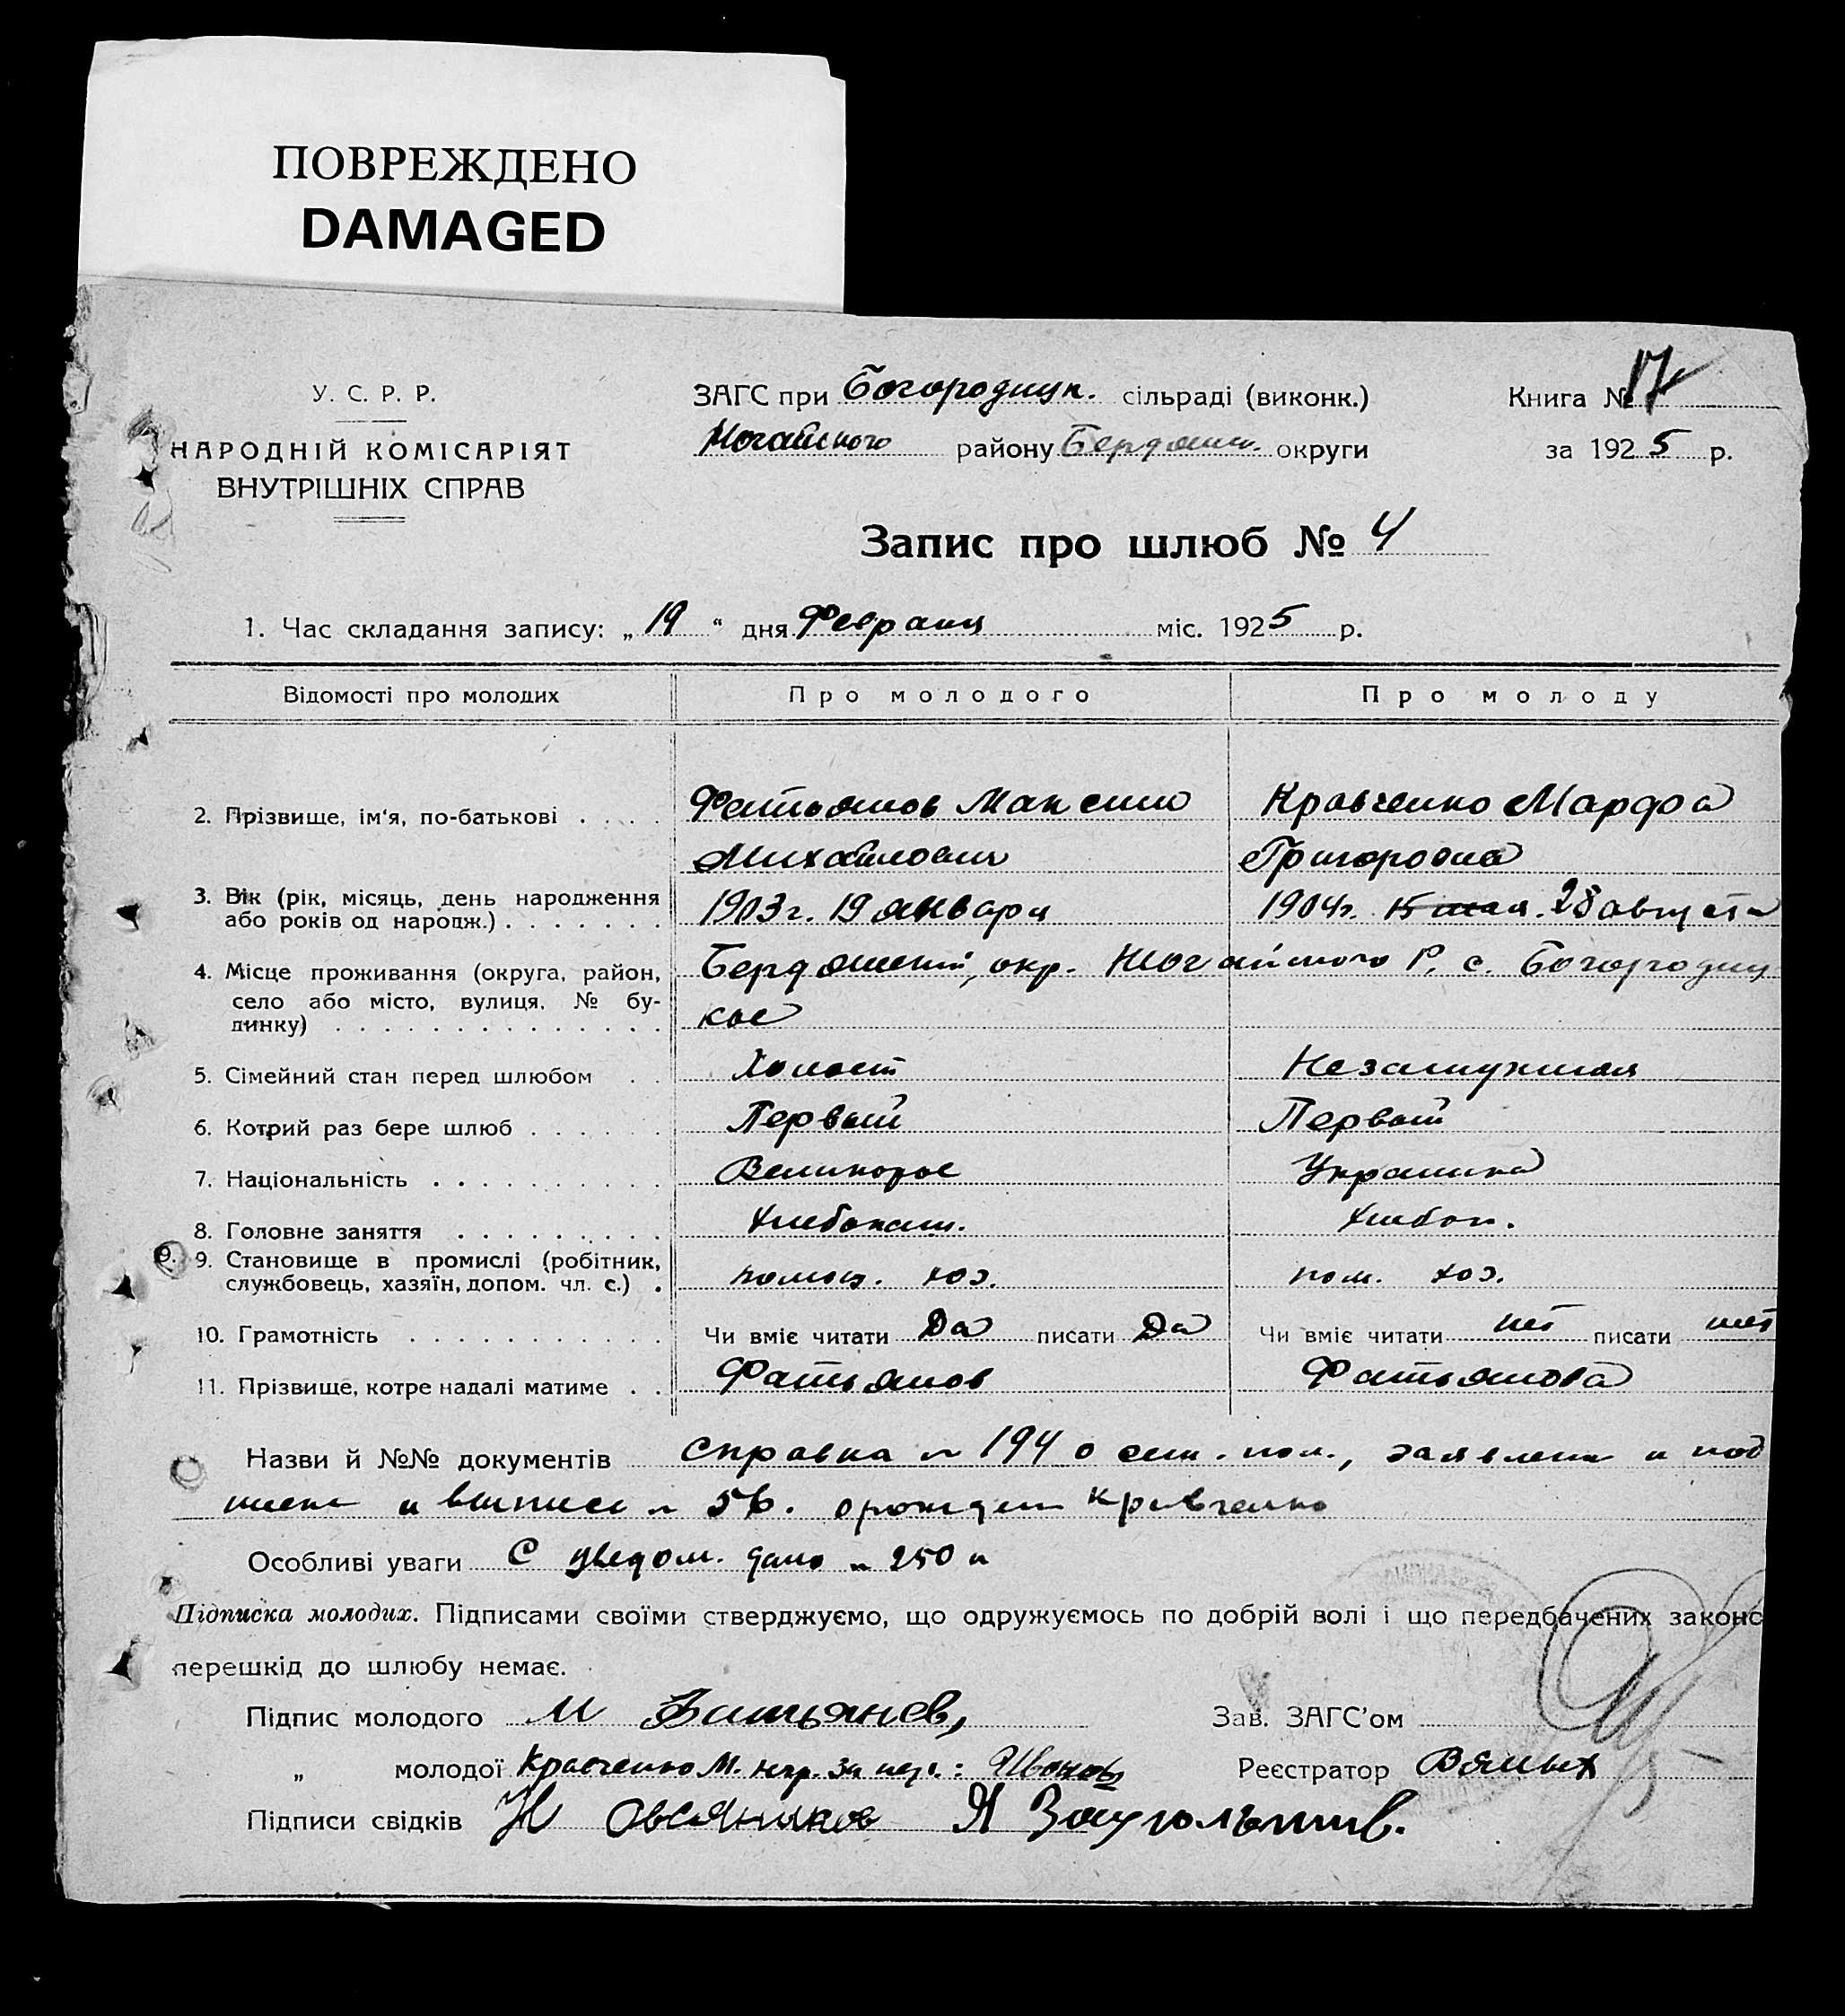 ПОВРЕЖДЕНО
DAMAGED
У. С. Р. Р.
НАРОДНІЙ КОМІСАРІЯТ
ВНУТРІШНІХ СПРАВ
ЗАГС при Богородицк. сільраді (виконк.)
Ногайского району Бердянск. округи
Книга № 17
за 1925 р.
Запис про шлюб № 4
1. Час складання запису: „19“ дня Февраля міс. 1925 р.
Відомості про молодих Про молодого Про молоду
2. Прізвище, ім'я, по-батькові . . . . Фатьянов Максим Кравченко Марфа
Михайлович Григоровна
3. Вік (рік, місяць, день народження 1903г. 19 января 1904г. 15 мая. 28 августа
або років од нарódж.) . . . . . . .
4. Місце проживання (округа, район, Бердянский, окр. Ногайского Р. с. Богородиц
село або місто, вулиця, № бу-
динку) . . . . . . . . . . . . . кое
5. Сімейний стан перед шлюбом . . Холост Незамужняя
6. Котрий раз бере шлюб . . . . . . Первый Первый
7. Національність . . . . . . . . . . Великорос Украинка
8. Головне заняття . . . . . . . . . Хлебопаш. Хлебоп.
9. 9. Становище в промислі (робітник, помощ. хоз. пом. хоз.
службовець, хазяїн, допом. чл. с.) .
10. Грамотність . . . . . . . . . . . Чи вміє читати Да писати Да Чи вміє читати нет писати нет
11. Прізвище, котре надалі матиме . . Фатьянов Фатьянова
Назви й №№ документів Справка № 194 о сем. пол., заявлен и под
писка и выписи № 56. о рожден Кравченко
Особливі уваги С уведом. дано № 250
Підписка молодих. Підписами своїми стверджуємо, що одружуємось по добрій волі і що передбачених законо
перешкід до шлюбу немає.
Підпис молодого М Фатьянов, Зав. ЗАГС'ом
„ молодої Кравченко М. негр. за нее: Реєстратор
Підписи свідків Н Овсяников Я